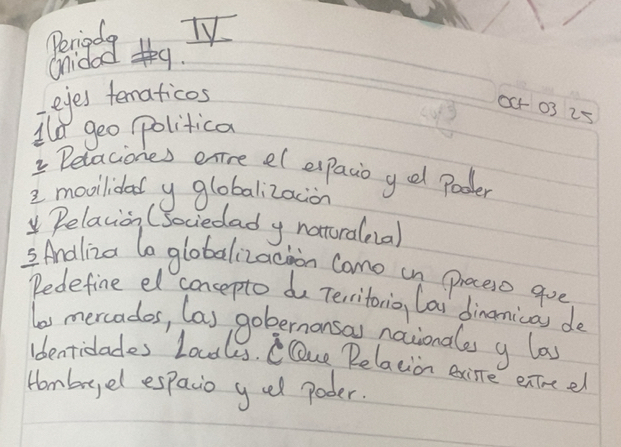 Periodo IV
Unidad #4.
Oct 03 25
- ejes tematicos
1 La geo politica
2 Relaciones entre el espacio y el Poder
3 movilidad y globalización
4 Relación (Sociedad y naturaleza)
5 Analiza la globalización como un proceso que
Redefine el concepto de Territorio, las dinamicas de
los mercados, las gobernansas nacionales y las
Identidades Locales. ¿Que Relación existe entre el
Hombre, el espacio y el poder.